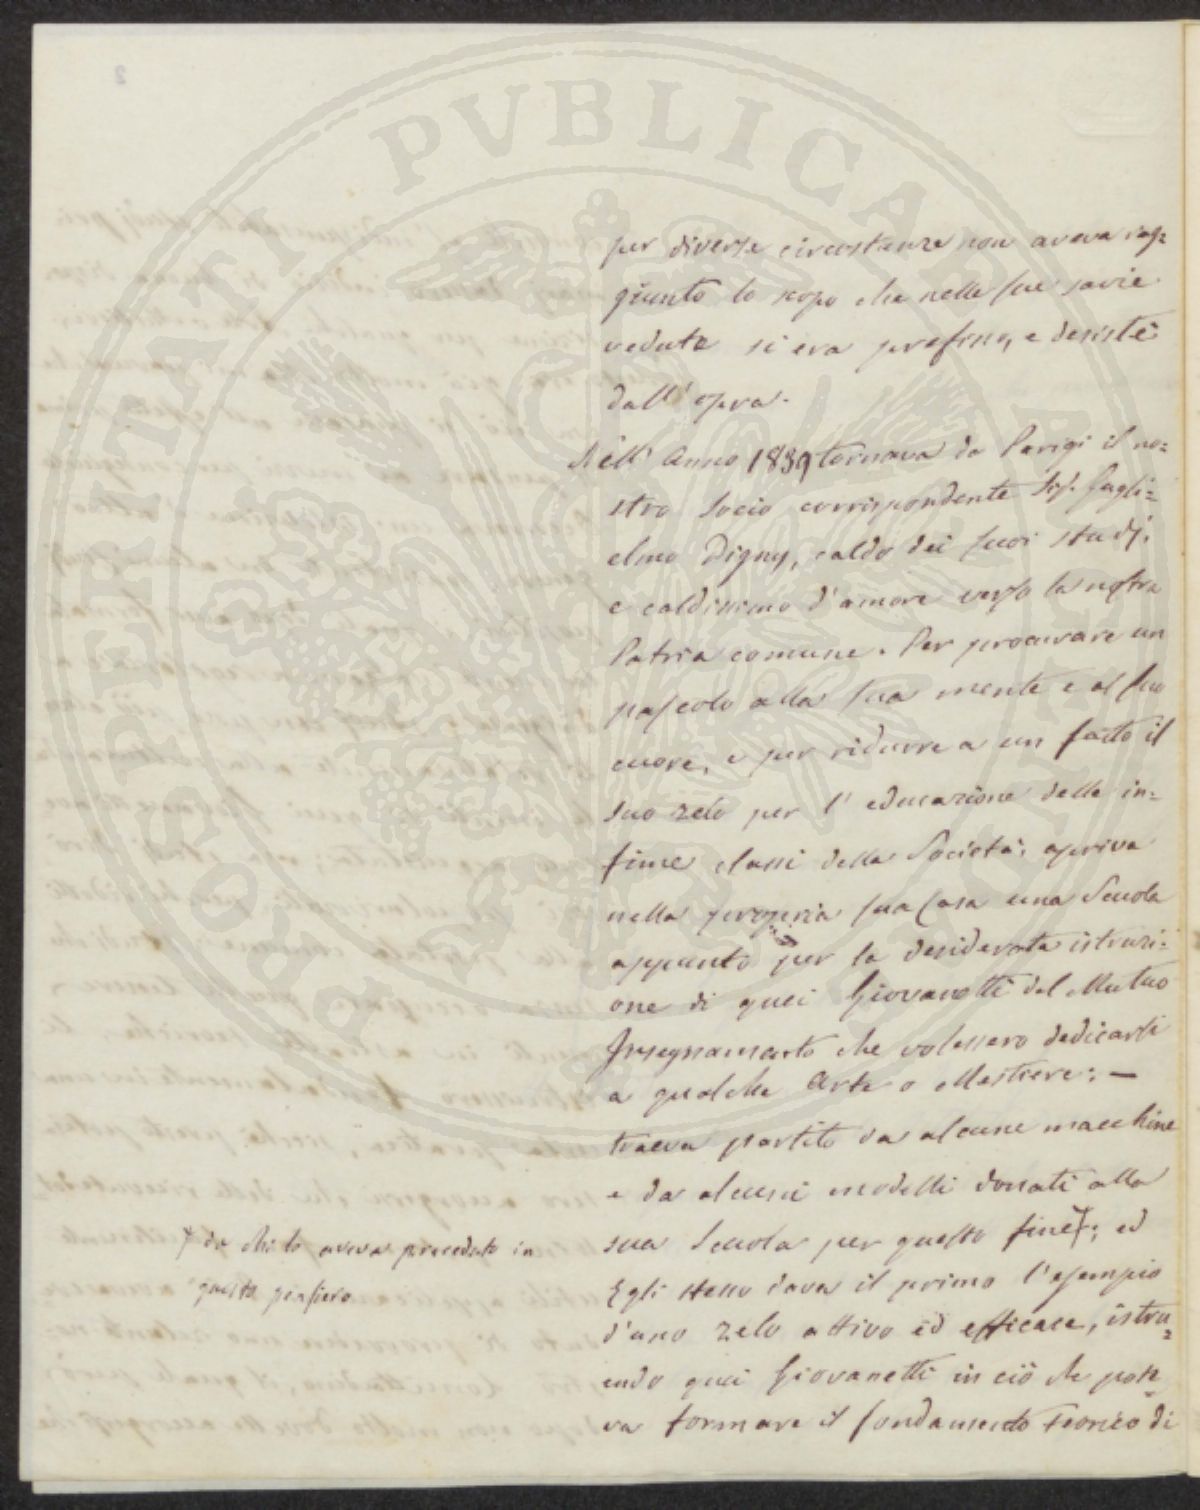 PROSPERITATI PVBLICAE
per diverse circostanze non aveva rag=
giunto lo scopo che nelle sue savie
vedute si era prefisso, e desistè
dall' opera.
Nell' Anno 1839 tornava da Parigi il no=
stro Socio corrispondente Sig. Gugli=
elmo Digny, caldo dei suoi studj,
e caldissimo d'amore verso la nostra
Patria comune. Per procurare un
pascolo alla sua mente e al suo
cuore, e per ridurre a un fatto il
suo zelo per l' educazione delle in=
fime classi della Società, apriva
nella propria sua Casa una Scuola
appunto per la desiderata istruzi=
one di quei Giovanetti del Mutuo
Insegnamento che volessero dedicarsi
a qualche Arte o Mestiere; —
traeva partito da alcune macchine
e da alcuni modelli donati alla
sua Scuola per questo fine; ed
da chi lo aveva preceduto in
questo pensiero
Egli stesso dava il primo l'esempio
d'uno zelo attivo ed efficace, istru=
endo quei Giovanetti in ciò che pote=
va formare il fondamento teorico di